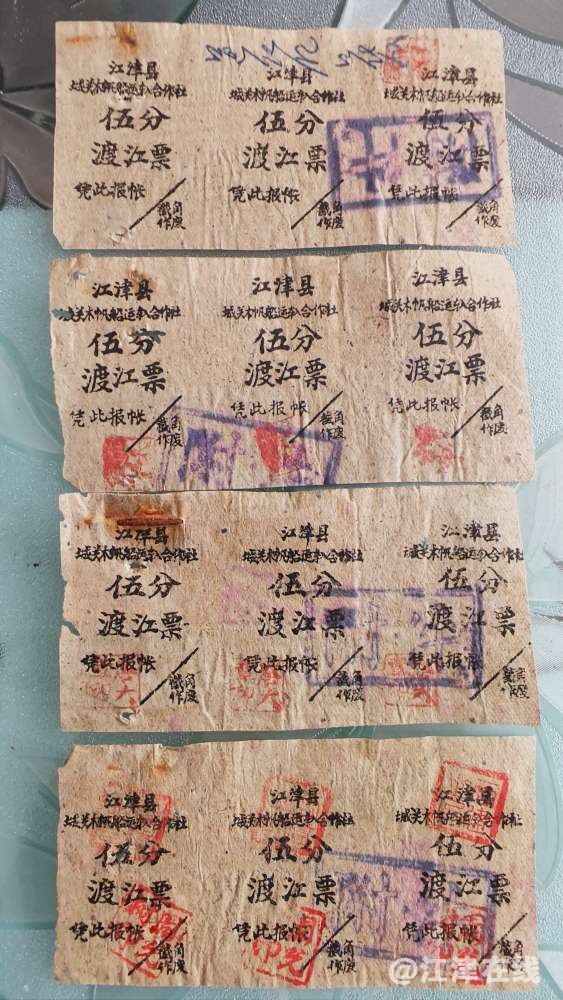 江津县 江津县 江津县
城关木帆船运输合作社 城关木帆船运输合作社 城关木帆船运输合作社
伍分 伍分 伍分
渡江票 渡江票 渡江票
凭此报帐 凭此报帐 凭此报帐
截角作废 截角作废 截角作废
江津县 江津县 江津县
城关木帆船运输合作社 城关木帆船运输合作社 城关木帆船运输合作社
伍分 伍分 伍分
渡江票 渡江票 渡江票
凭此报帐 凭此报帐 凭此报帐
截角作废 截角作废 截角作废
江津县 江津县 江津县
城关木帆船运输合作社 城关木帆船运输合作社 城关木帆船运输合作社
伍分 伍分 伍分
渡江票 渡江票 渡江票
凭此报帐 凭此报帐 凭此报帐
截角作废 截角作废 截角作废
江津县 江津县 江津县
城关木帆船运输合作社 城关木帆船运输合作社 城关木帆船运输合作社
伍分 伍分 伍分
渡江票 渡江票 渡江票
凭此报帐 凭此报帐 凭此报帐
截角作废 截角作废 截角作废
@江津在线